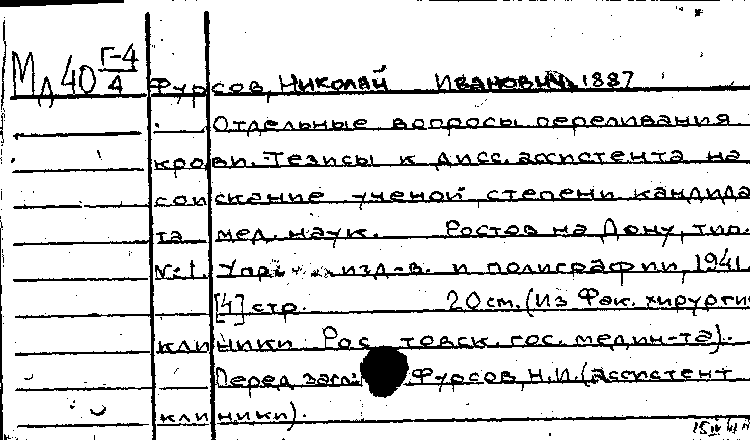 Мл 40 Г-4/4
Фурсов, Николай Иванович, 1887
Отдельные вопросы переливания
крови. Тезисы к дисс. ассистента на
соискание ученой степени кандида
та мед. наук. Ростов на Дону, тип.
№ 1. Упр. изд-в. и полиграфии, 1941.
[4] стр. 20 см. (Из Фак. хирурги
клиники Рос товск. гос. медин-та).
Перед загл.: Фурсов, Н.И. (ассистент
клиники).